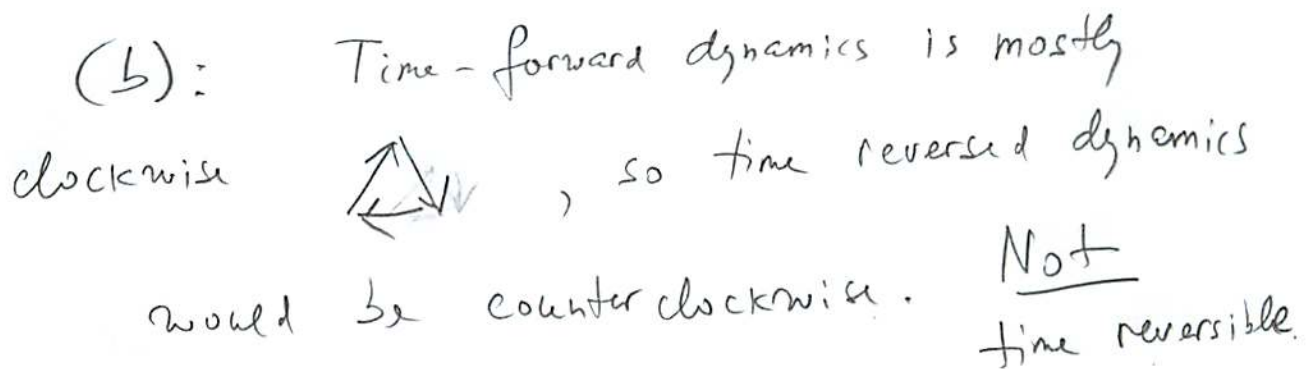 (b): Time-forward dynamics is mostly
clockwise , so time reversed dynamics
would be counterclockwise. Not
time reversible.